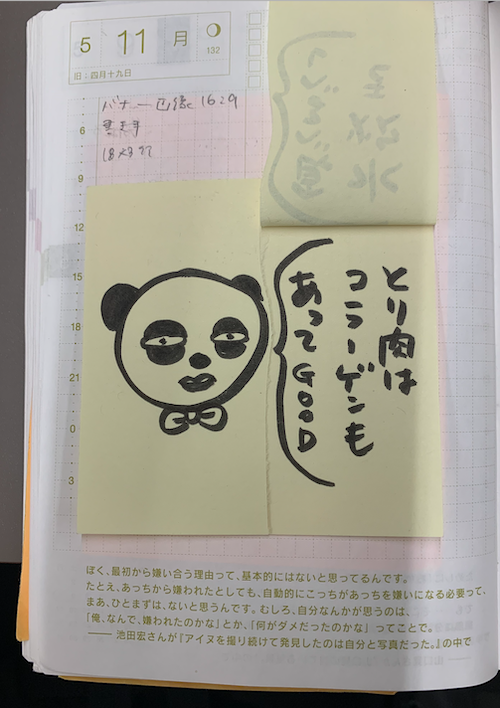 5 11 月
132
旧：四月十九日
1629
6
9
12
15
18
21
0
3
とり肉は
コラーゲンも
あってGOOD
ぼく、最初から嫌い合う理由って、基本的にはないと思ってるんです。
たとえ、あっちから嫌われたとしても、自動的にこっちがあっちを嫌いになる必要って、
まあ、ひとまずは、ないと思うんです。むしろ、自分なんかが思うのは、
「俺、なんで、嫌われたのかな」とか、「何がダメだったのかな」ってことで。
―― 池田宏さんが『アイヌを撮り続けて発見したのは自分と写真だった。』の中で